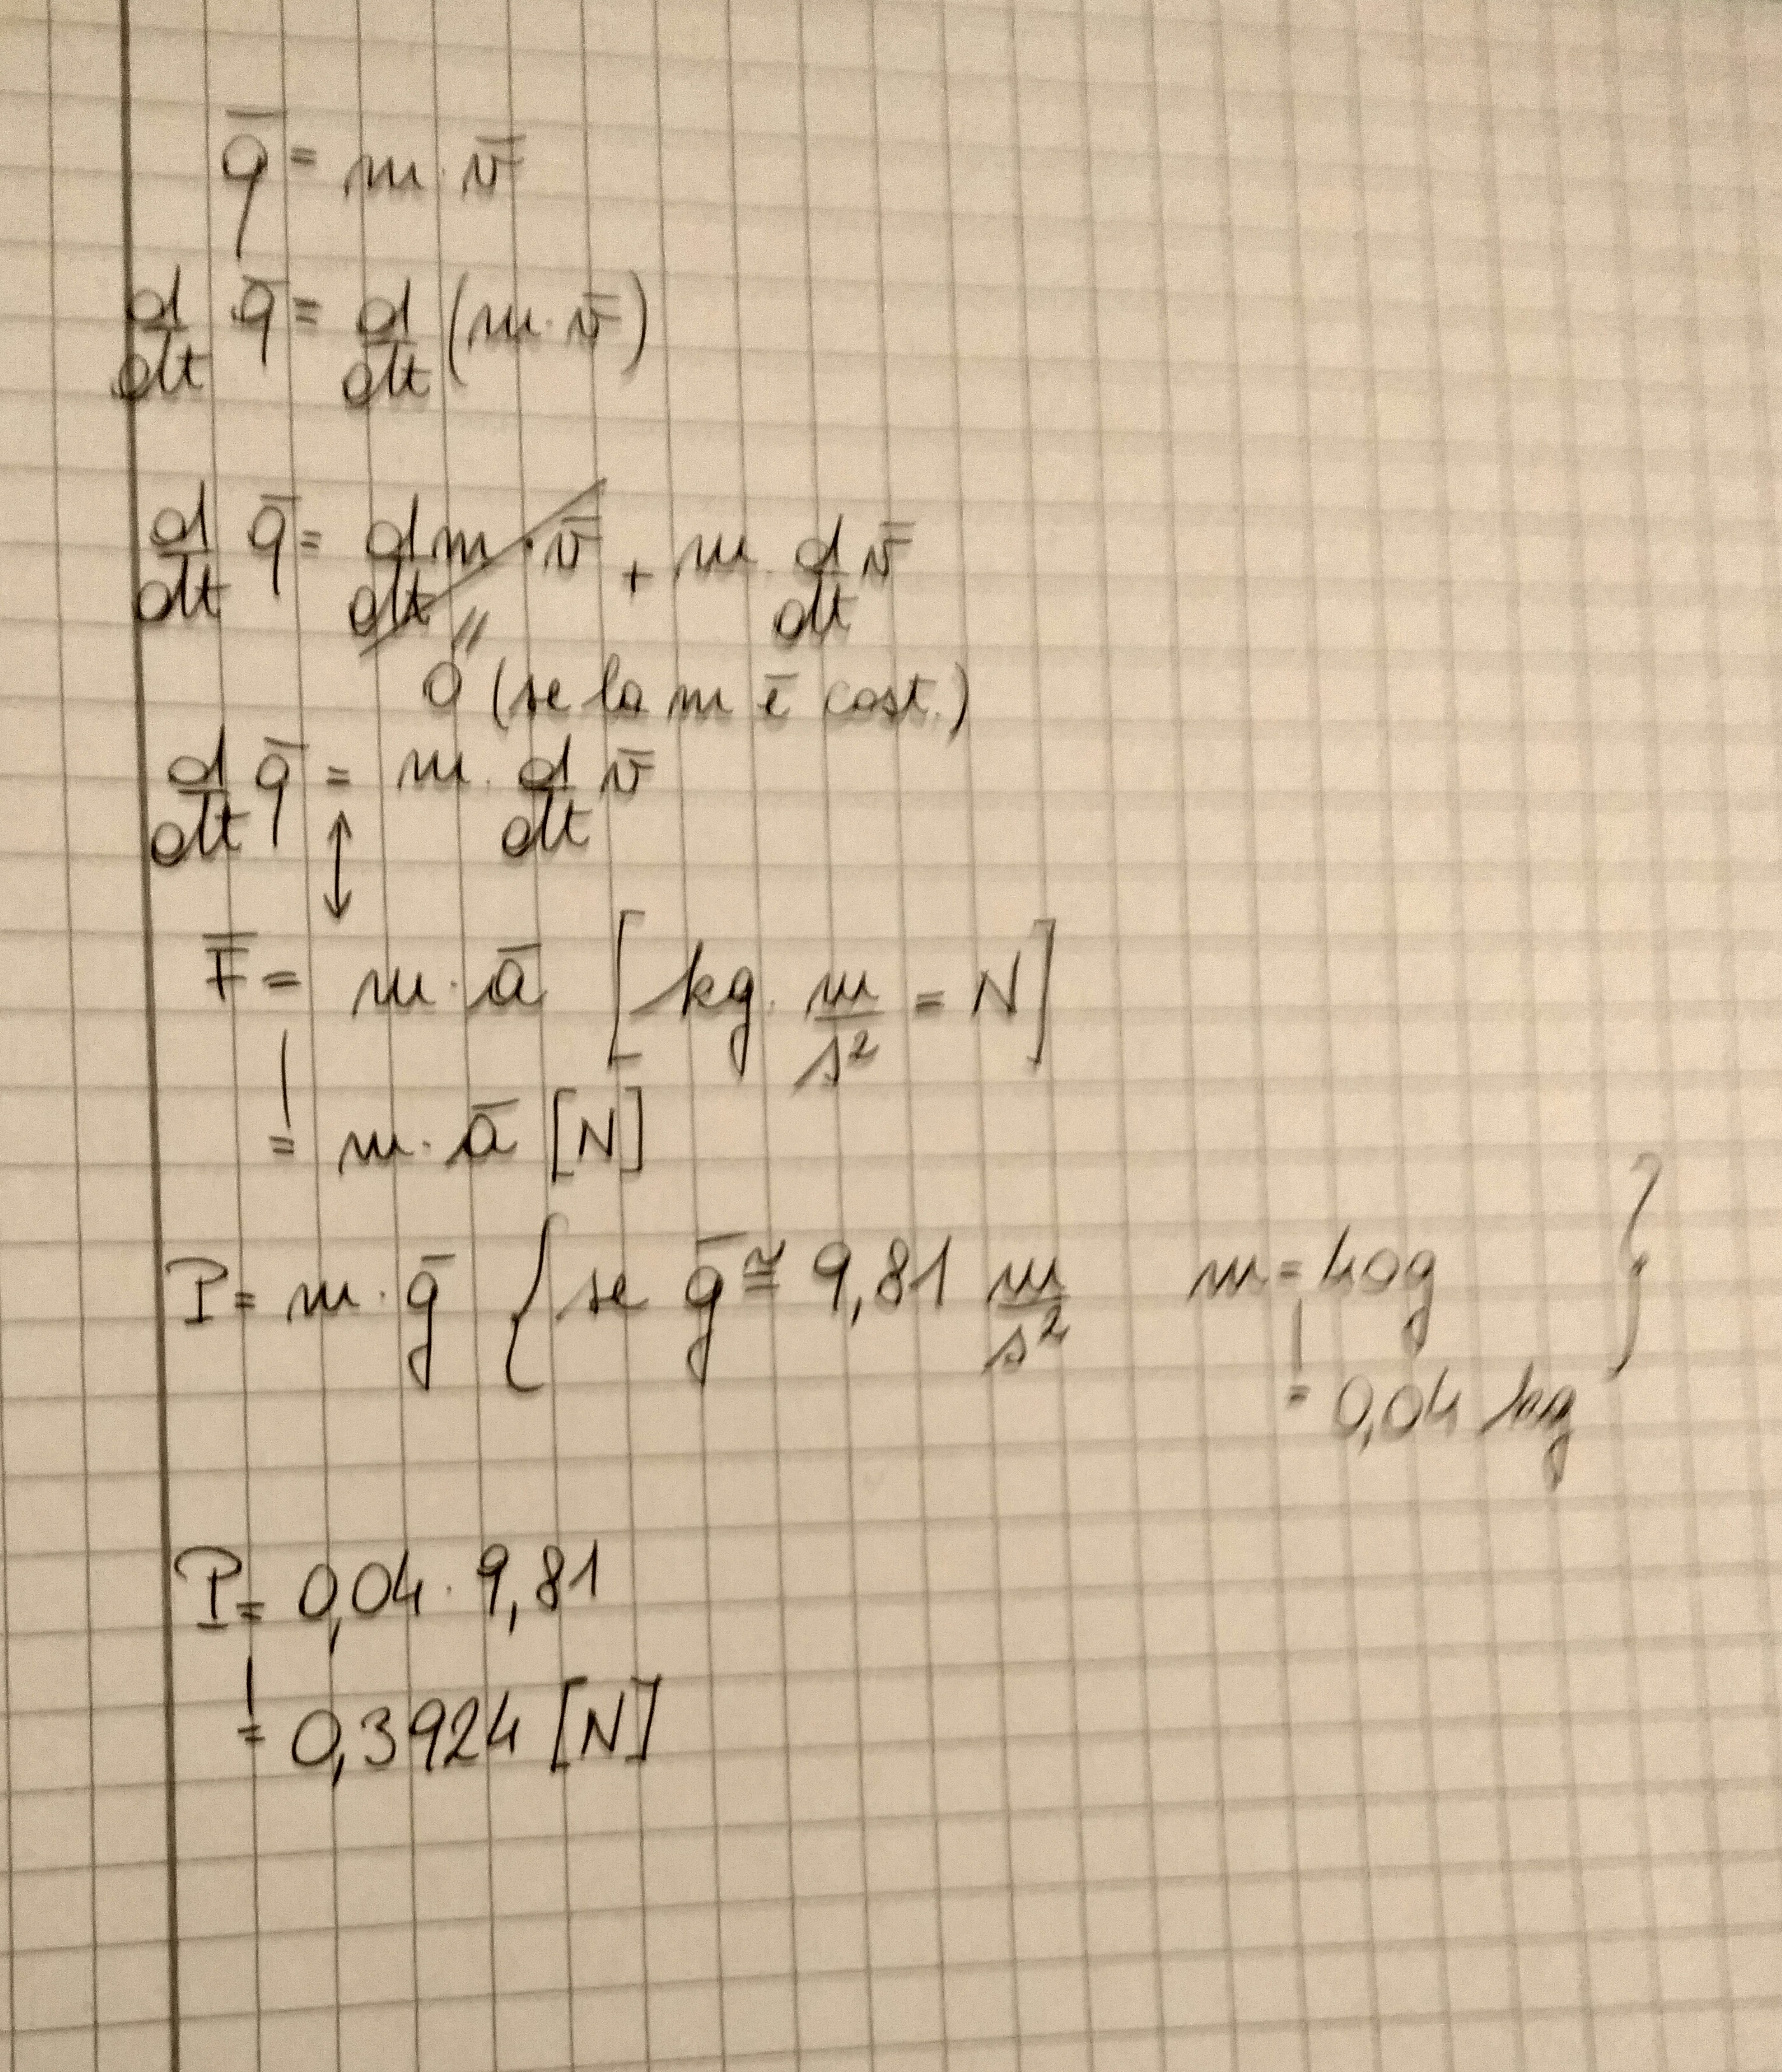 q̅ = m · v̅
d/dt q̅ = d/dt (m · v̅)
d/dt q̅ = dm/dt · v̅ + m · d/dt v̅
"
0 (se la m è cost.)
d/dt q̅ = m · d/dt v̅
↕
F̅ = m · a̅ [kg · m/s² = N]
= m · a̅ [N]
P = m · g̅ { se g̅ ≅ 9,81 m/s² m = 40g }
= 0,04 kg
P = 0,04 · 9,81
= 0,3924 [N]